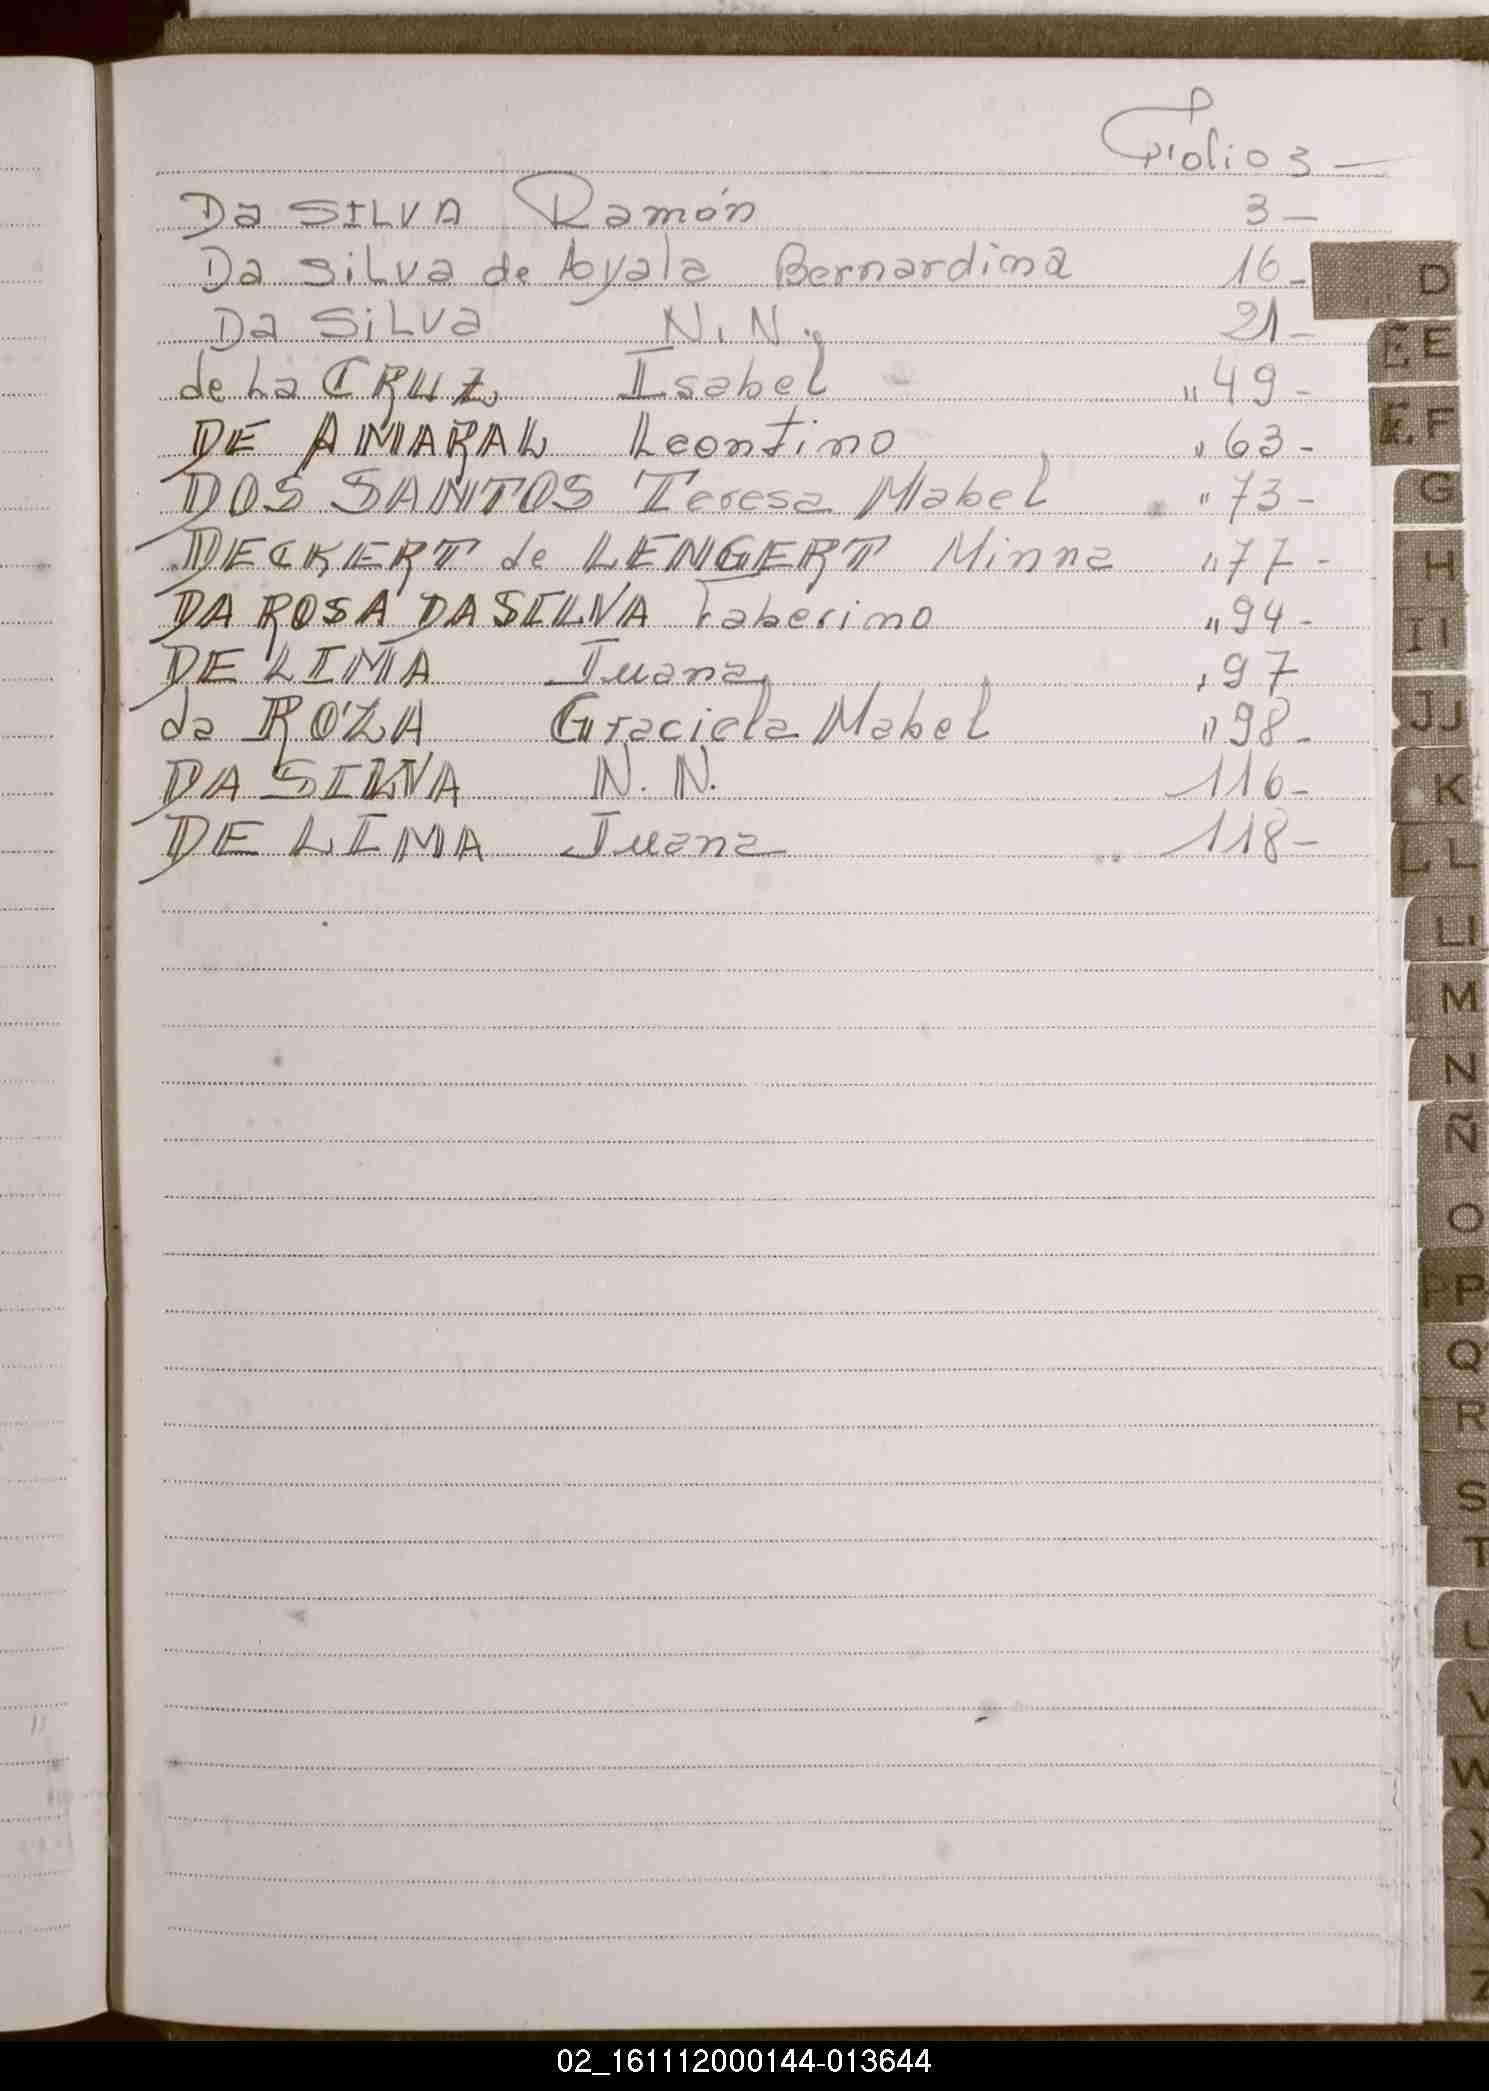 Folio 3 —
Da SILVA Ramón 3 —
Da SiLva de Ayala Bernardina 16 -
Da SiLva N. N. 21 -
de La CRUZ Isabel " 49 -
DE AMARAL Leontino " 63 -
DOS SANTOS Teresa Mabel " 73 -
DECKERT de LENGERT Minna " 77 -
DA ROSA DA SILVA Faberino " 94 -
DE LIMA Juana , 97
da ROZA Graciela Mabel " 98 -
DA SILVA N. N. 116 -
DE LIMA Juana 118 -
D
E E
E F
G
H
I I
J J
K
L L
Ll
M
N
Ñ
O
P P
Q
R
S
T
U
V
W
X
Y
Z
02_161112000144-013644